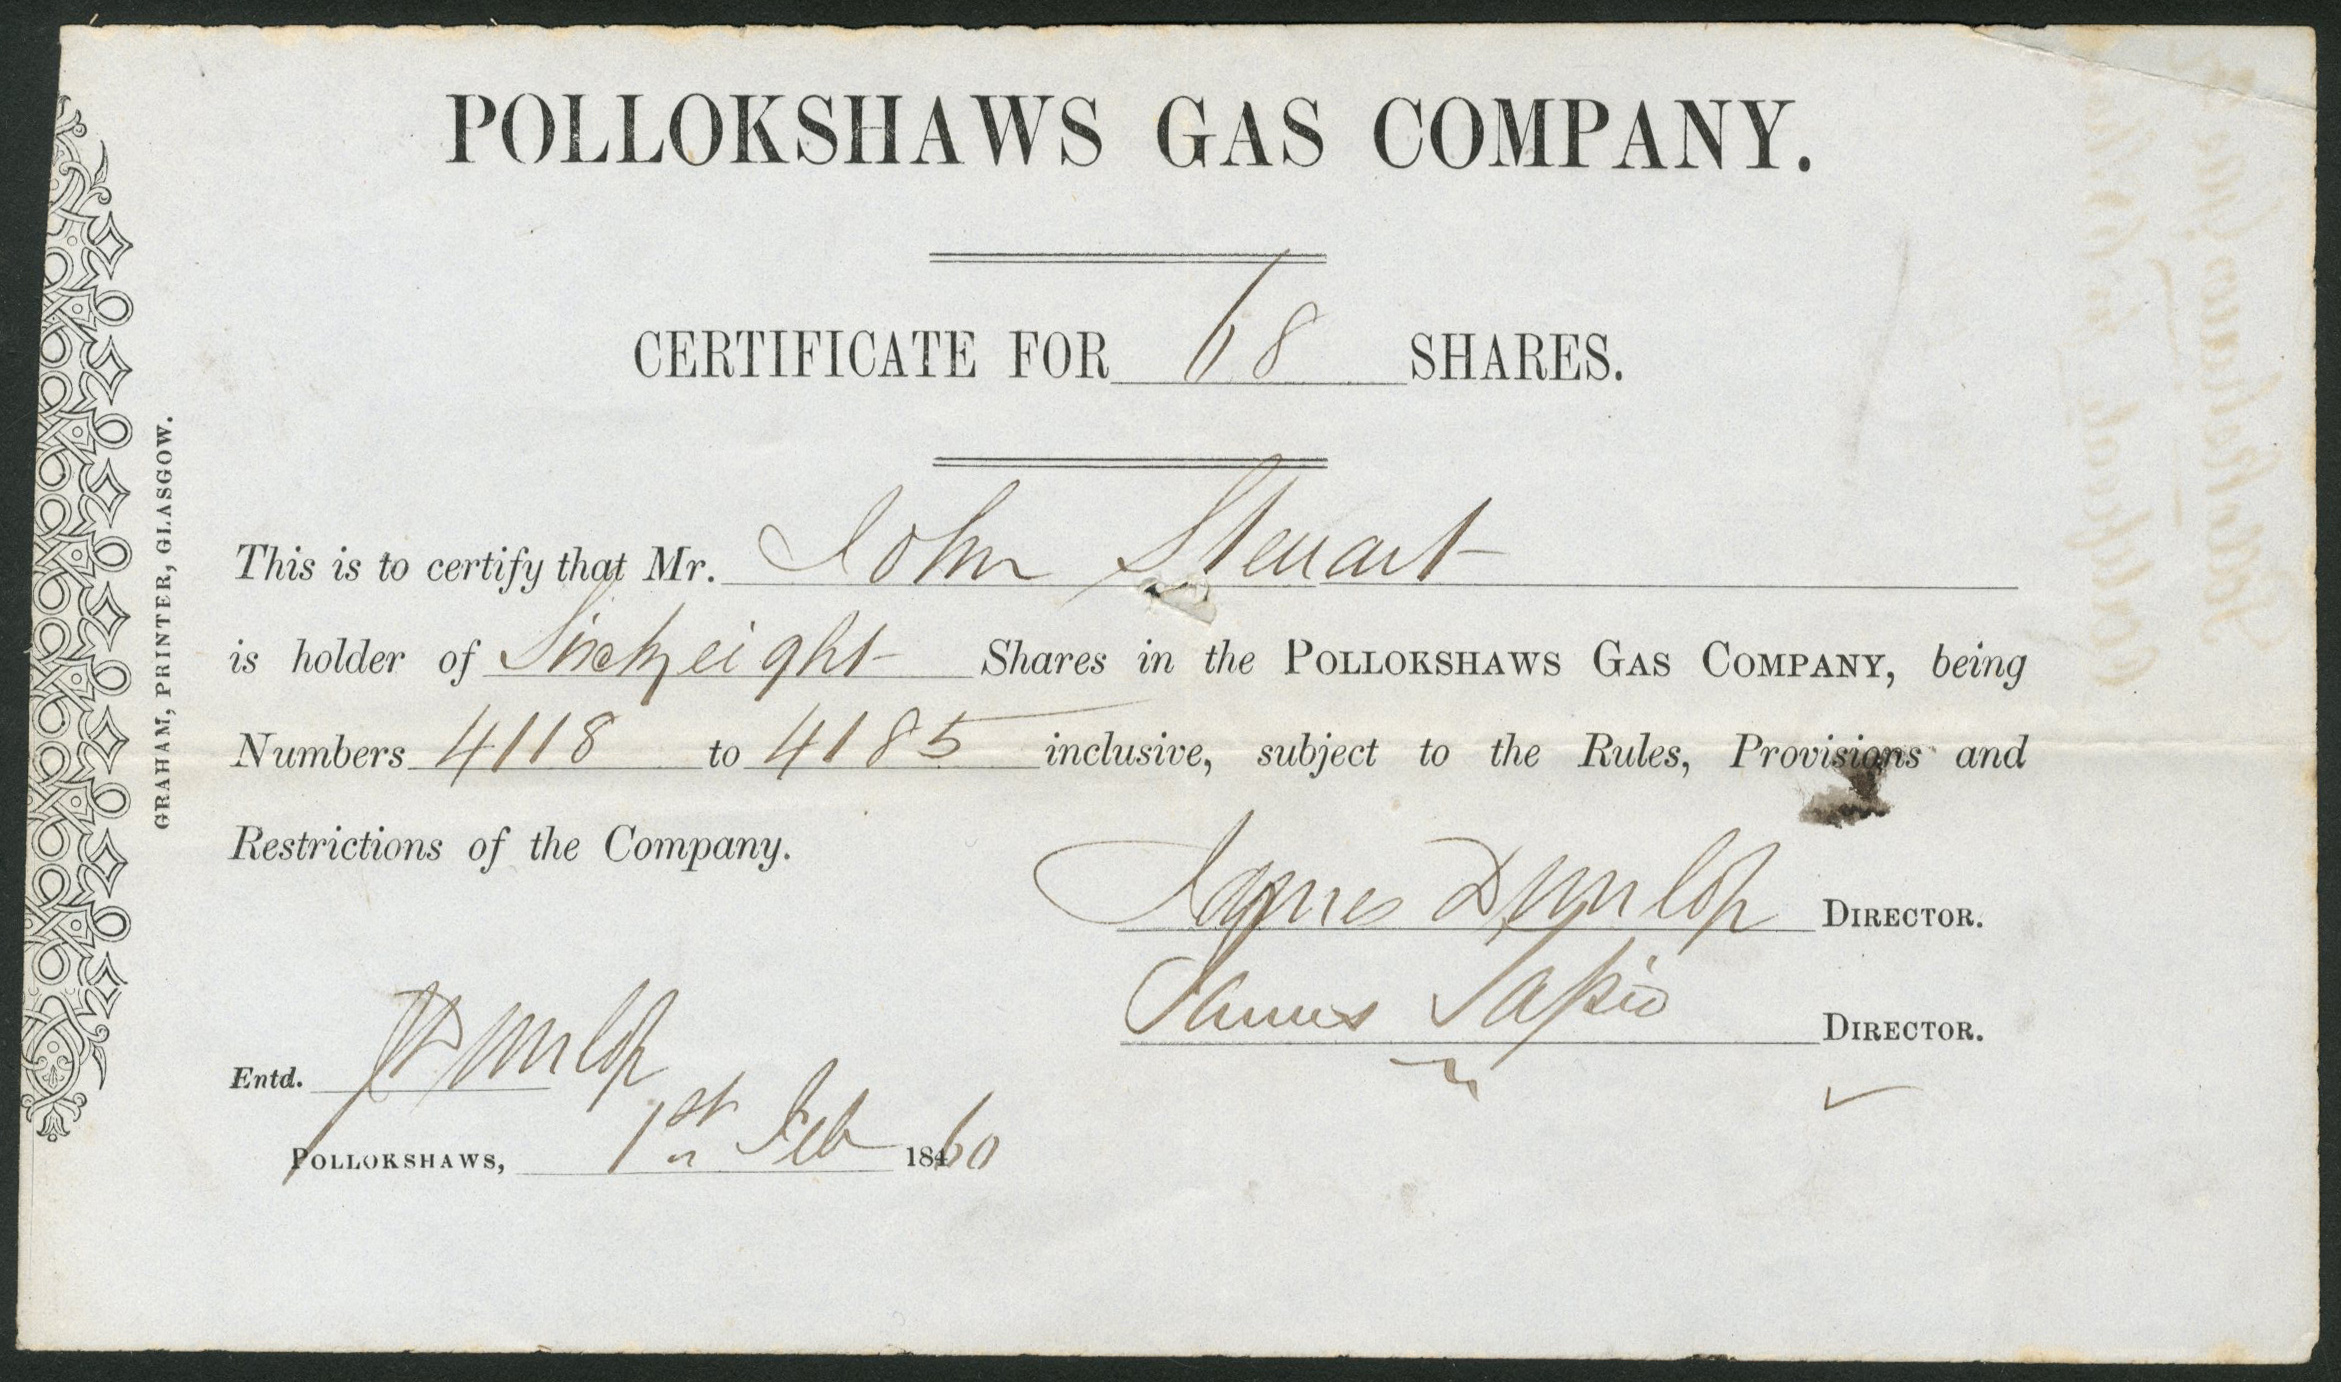 POLLOKSHAWS GAS COMPANY.
CERTIFICATE FOR 68 SHARES.
This is to certify that Mr. John Steuart
is holder of Sixty eight Shares in the POLLOKSHAWS GAS COMPANY, being
Numbers 4118 to 4185 inclusive, subject to the Rules, Provisions and
Restrictions of the Company.
James Dunlop DIRECTOR.
James DIRECTOR.
Entd. J Dunlop
POLLOKSHAWS, 1st Feb 1860
GRAHAM, PRINTER, GLASGOW.